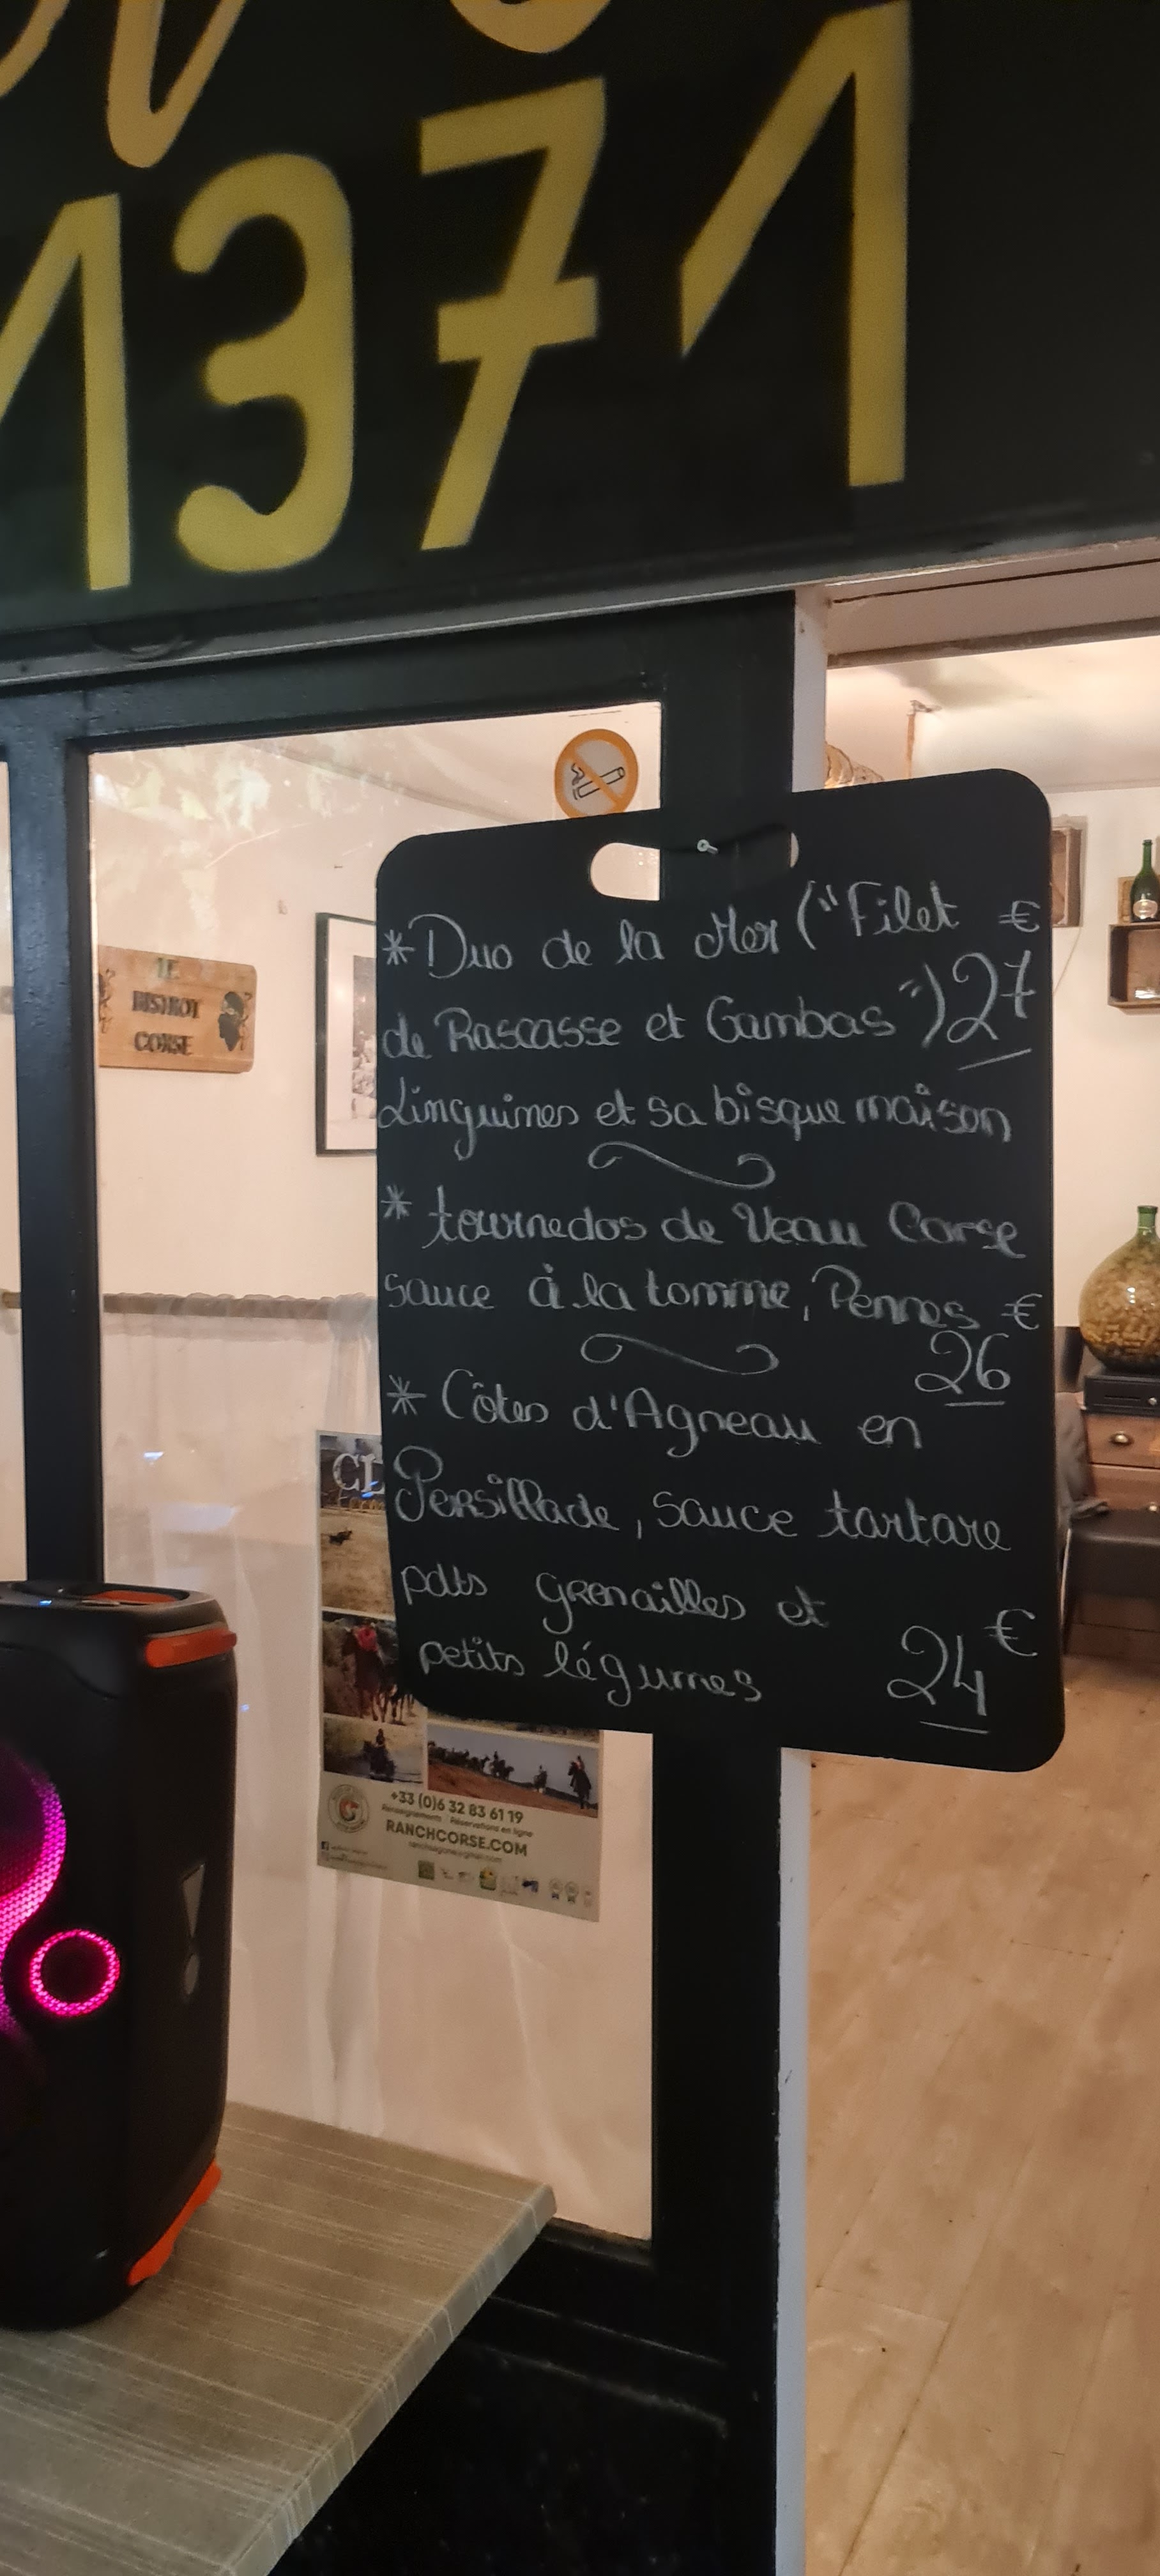 1371
*Duo de la Mer ("Filet €
de Rascasse et Gambas") 27
Linguines et sa bisque maison
* tournedos de Veau Corse
sauce à la tomme, Pennes €
26
* Côtes d'Agneau en
Persillade, sauce tartare
pdts grenailles et
petits légumes 24 €
LE
BISTROT
CORSE
CL
+33 (0)6 32 83 61 19
Renseignements Réservations en ligne
RANCHCORSE.COM